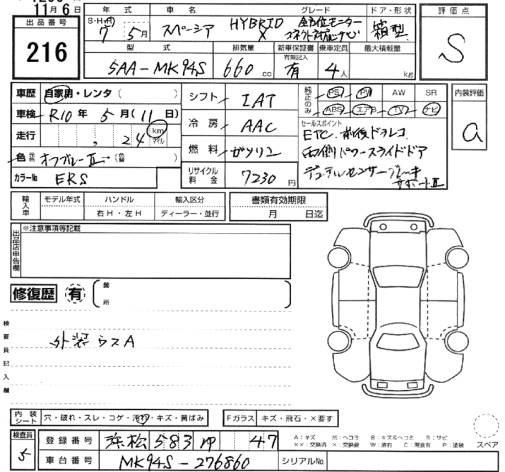 11月6日
出品番号
216
年式 車名 グレード ドア・形状
S・H・R 7年5月 スペーシア HYBRID X 全方位モニター コネクト対応ナビ 箱型
型式 排気量 新車保証書 乗車定員 最大積載量
5AA-MK94S 660cc 有無記入 有 4人 kg
評価点
S
車歴 自家用・レンタ( )
車検 R10年5月(11日)
走行 , 24 km マイル
色 オフブルーⅡ( )
カラーNo ERS
シフト IAT
冷房 AAC
燃料 ガソリン
リサイクル料金 7230円
純正のみ PS PW AW SR
ABS エアB TV ナビ
セールスポイント
ETC 前後ドラレコ
両側パワースライドドア
デュアルセンサーブレーキ
サポートⅡ
内装評価
a
輸入車 モデル年式 ハンドル 輸入区分 書類有効期限
右H・左H ディーラー・並行 月 日迄
出品店申告欄
※注意事項等記載
修復歴 有 箇所
検査員記入欄
外装ウスA
内装シート 穴・破れ・スレ・コゲ・汚れ・キズ・黄ばみ Fガラス キズ・飛石・×要す
検査員 5
登録番号 浜松 583 47
車台番号 MK94S-276860 シリアルNo.
A:キズ M:ヘコミ B:キズ&ヘコミ S:サビ
××:交換済 ×:要交換 W:波打 C:腐食有 P:塗装
スペア